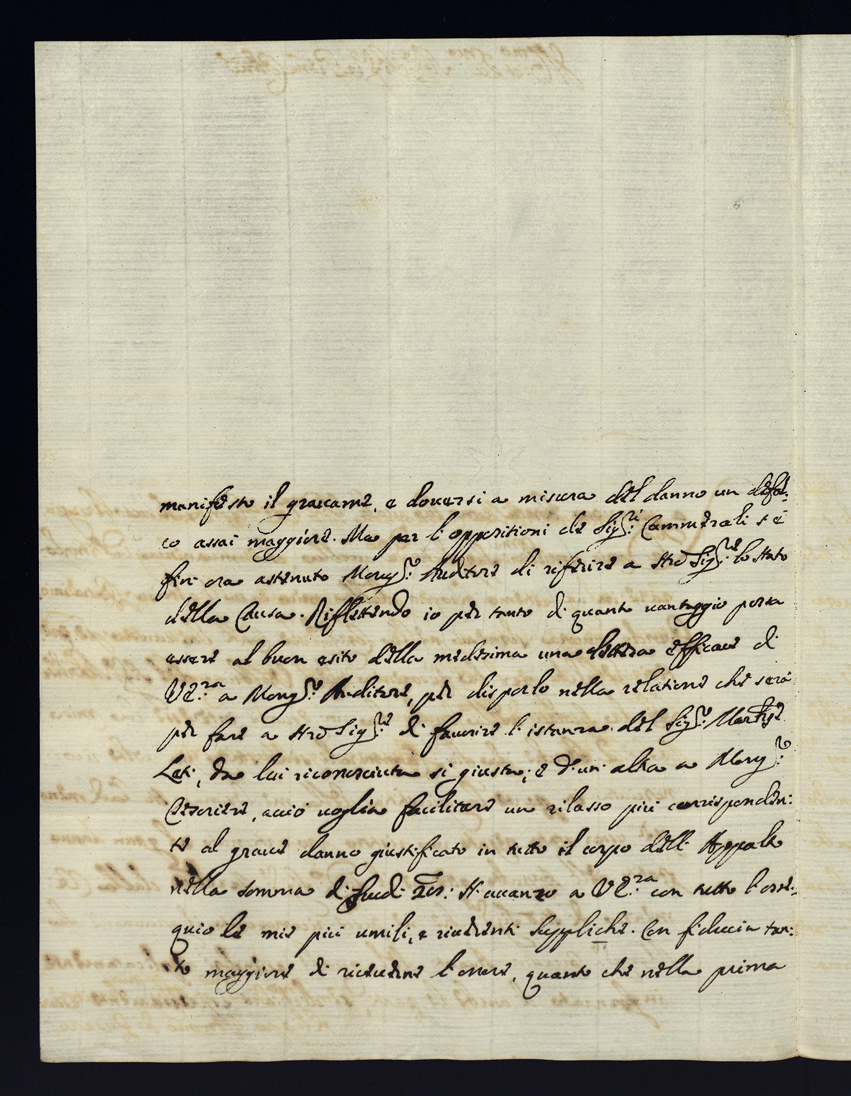 manifesto il gravame, e doversi a misura del danno un defal:
co assai maggiore. Ma per l'oppositioni de Sig.ri Camerali s'è
fin' ora astenuto Mong.r Auditore di riferire a Nro Sig.re lo stato
della Causa. Riflettendo io per tanto di quanto vantaggio possa
essere al buon esito della medesima una lettera efficace di
VE.za a Mong.r Auditore, per disporlo nella relatione che sarà
per fare a Nro Sig.re di favorire l'istanza del Sig.r Marchse
Leti, da lui riconosciuta si giusta; e d'un' altra a Mong.r
Tesoriere, acciò voglia facilitare un rilasso più corrisponden:
te al grave danno giustificato in tutto il corpo dell' Appalto
nella somma di scudi; Avanzo a VE.za con tutto l'osse:
quio le mie più umili, e riverenti suppliche. Con fiducia tan:
to maggiore di riceverne l'onore, quanto che nella prima